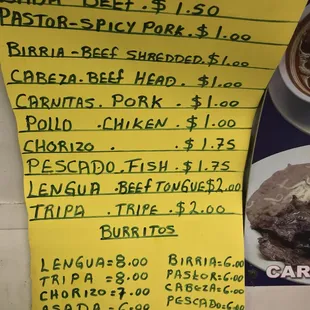 BEEF.$ 1.50
PASTOR-SPICY PORK.$1.00
BIRRIA-BEEF SHREDDED.$1.00
CABEZA.BEEF HEAD. $1.00
CARNITAS. PORK . $1.00
POLLO .CHIKEN.$1.00
CHORIZO . .$1.75
PESCADO.FISH.$1.75
LENGUA .BEEF TONGUE$2.00
TRIPA . TRIPE.$2.00
BURRITOS
LENGUA=8.00
TRIPA =8.00
CHORIZO=7.00
ASADA =6.00
BIRRIA=6.00
PASTOR=6.00
CABEZA=6.00
PESCADO=6.00
CAR